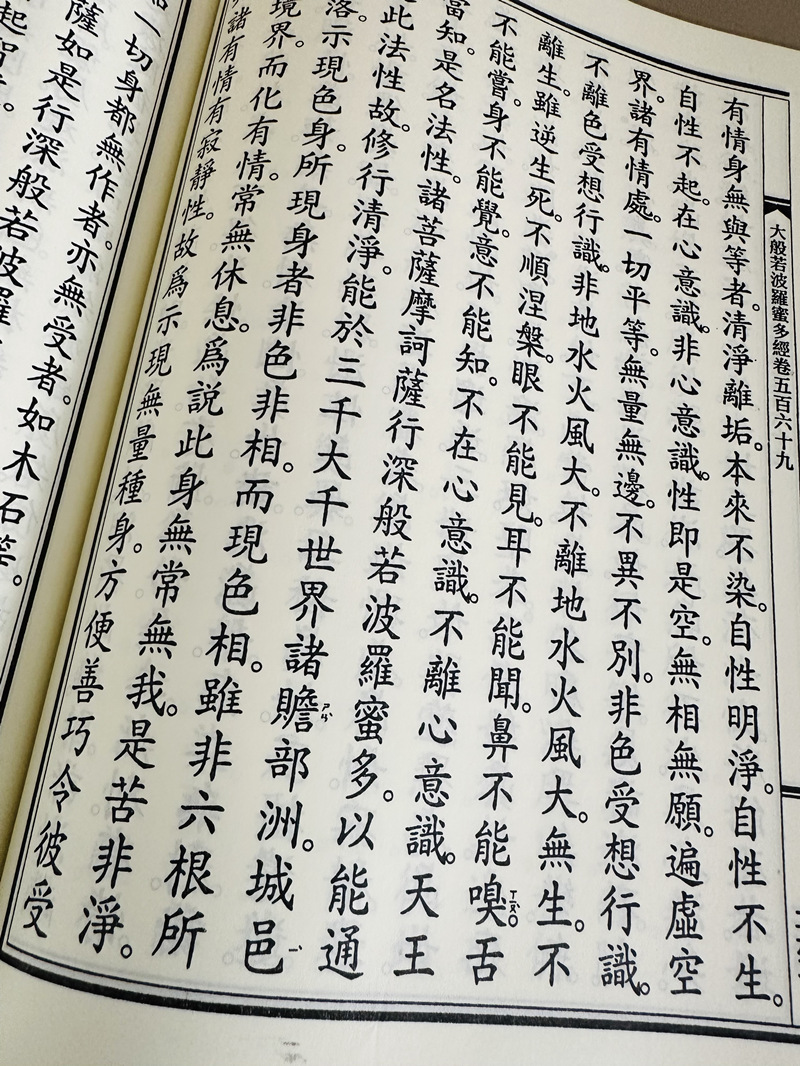 大般若波羅蜜多經卷五百六十九
有情身無與等者。清淨離垢。本來不染。自性明淨。自性不生。
自性不起。在心意識。非心意識。性即是空。無相無願。遍虛空
界。諸有情處。一切平等。無量無邊。不異不別。非色受想行識。
不離色受想行識。非地水火風大。不離地水火風大。無生。不
離生。雖逆生死。不順涅槃。眼不能見。耳不能聞。鼻不能嗅。舌
不能嘗。身不能覺。意不能知。不在心意識。不離心意識。天王
當知。是名法性。諸菩薩摩訶薩行深般若波羅蜜多。以能通
此法性故。修行清淨。能於三千大千世界諸贍部洲。城邑
落。示現色身。所現身者非色非相。而現色相。雖非六根所
境界。而化有情。常無休息。為說此身無常無我。是苦非淨。
諸有情有寂靜性。故為示現無量種身。方便善巧令彼受
一切身都無作者。亦無受者。如木石等。
薩如是行深般若波羅
起智